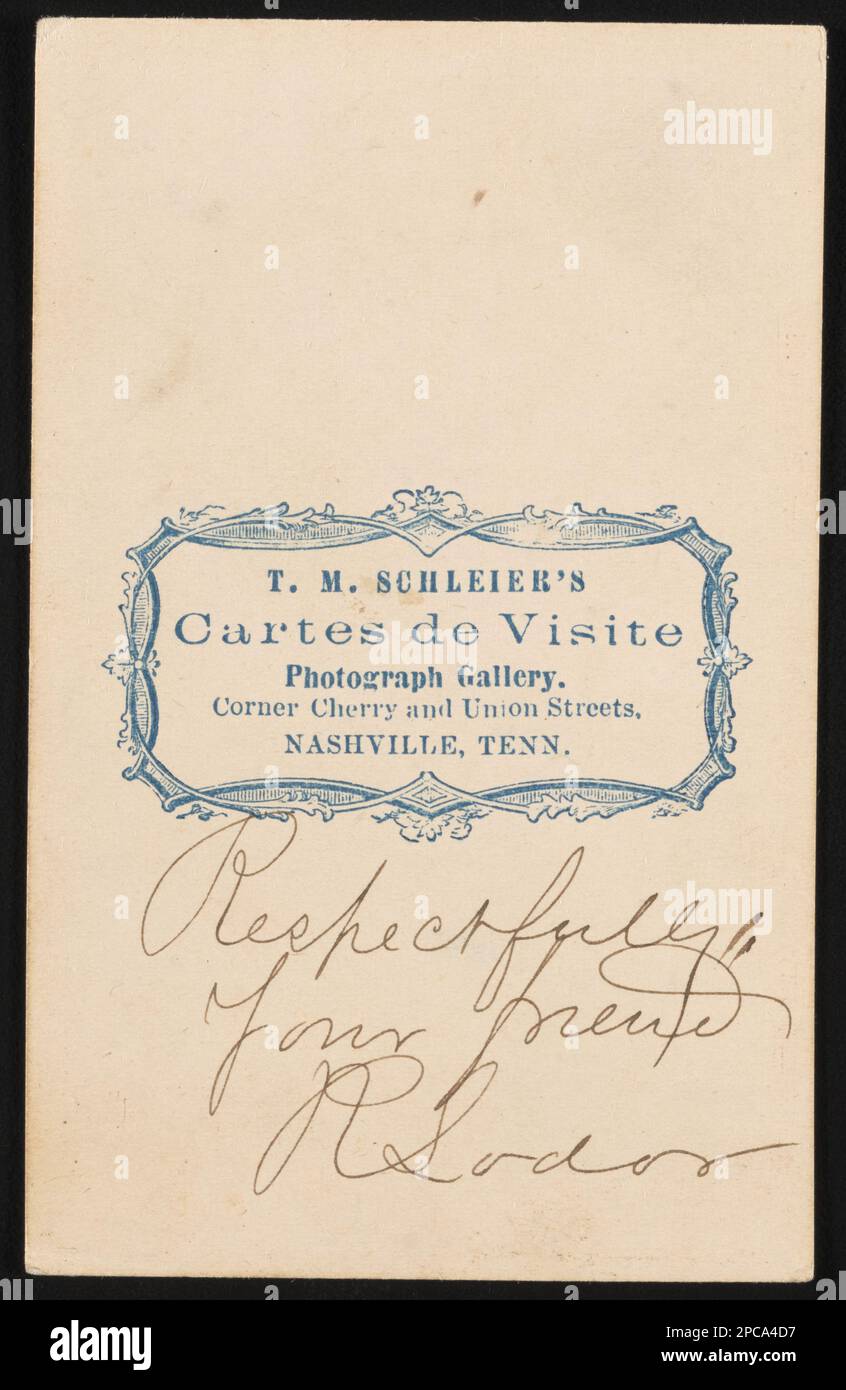 T. M. SCHLEIER'S
Cartes de Visite
Photograph Gallery.
Corner Cherry and Union Streets,
NASHVILLE, TENN.
Respectfully,
Your friend
R Lodor
alamy
alamy
alamy
Image ID: 2PCA4D7
www.alamy.com